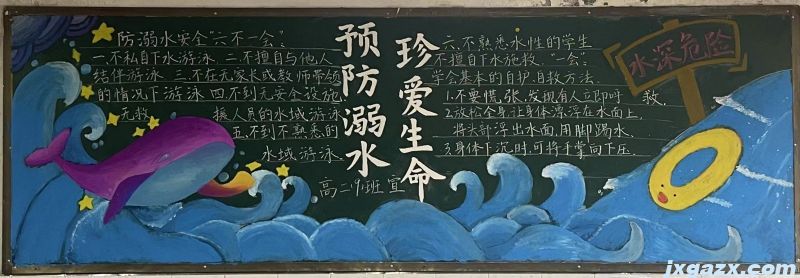 防溺水安全"六不一会":
一、不私自下水游泳.二、不擅自与他人
结伴游泳.三、不在无家长或教师带领
的情况下游泳.四、不到无安全设施、
无救援人员的水域游泳.
五、不到不熟悉的
水域游泳
预防溺水
珍爱生命
高二19班宣
六、不熟悉水性的学生
不擅自下水施救."一会":
学会基本的自护、自救方法.
1.不要慌张,发现有人立即呼救.
2.放松全身,让身体漂浮在水面上,
将头部浮出水面,用脚踢水.
3.身体下沉时,可将手掌向下压.
水深危险
ixgazx.com